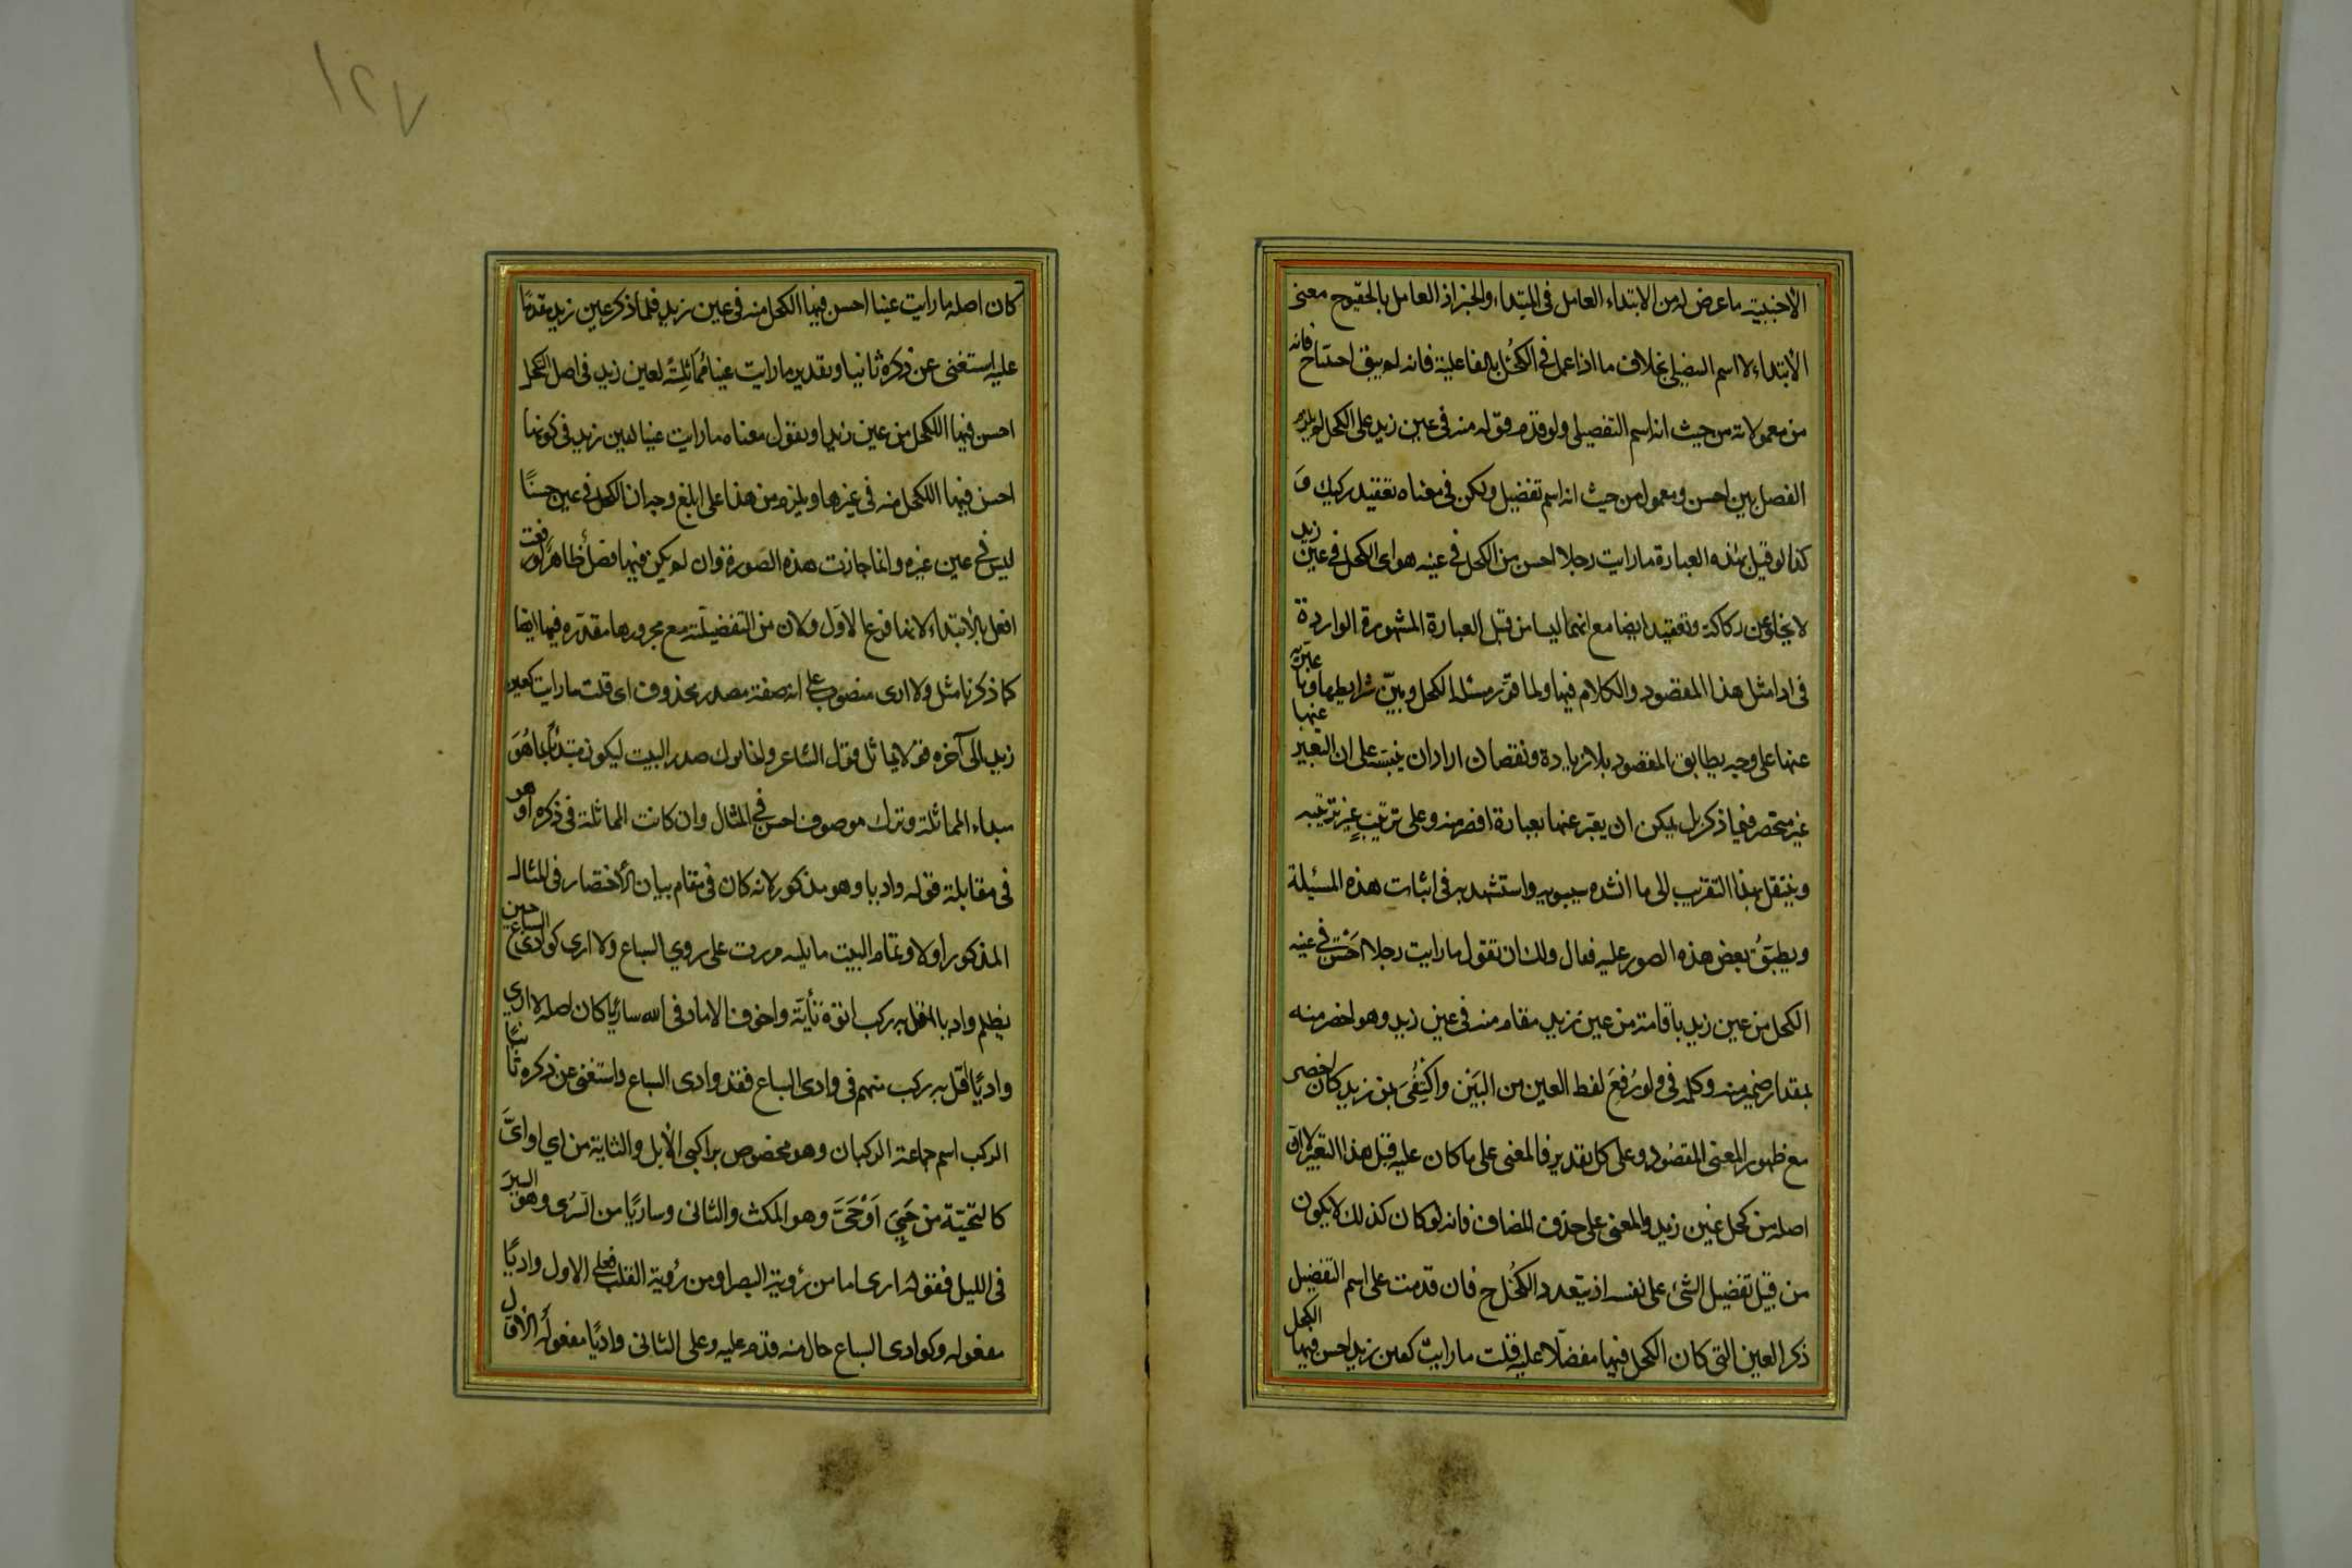 الاجنبية ما عرض له من الابتداء العامل فى المبتداء والخبر اذ العامل بالحقيقة ح معنى
الابتداء لا اسم التفضيل بخلاف ما اذا عمل فى الكحل بالفاعلية فانه لم يبق احتياج فانه
من معمولاته من حيث انه اسم التفضيل ولو قدم قوله منه فى عين زيد على الكحل لم يلزم
الفصل بين احسن ومعموله من حيث انه اسم تفضيل ولكن فى معناه تعقيد ركيك و
كذا لو قيل بهذه العبارة ما رايت رجلا احسن من الكحل فى عينه هو اى الكحل فى عين زيد
لا يخلو عن ركاكة وتعقيد ايضا مع انهما ليسا من قبل العبارة المشهورة الواردة
فى اداء مثل هذا المقصود والكلام فيها ولما قرر مسئلة الكحل وبين شرايطها وما عبر به
عنها على وجه يطابق المقصود بلا زيادة ونقصان اراد ان ينبه على ان التعبير عنها
غير منحصر فيما ذكر بل يمكن ان يعبر عنها بعبارة اخصر منه وعلى ترتيب غير ترتيبه
وينتقل بهذا التقريب الى ما انشده سيبويه واستشهد به فى اثبات هذه المسئلة
ويطبق بعض هذه الصور عليه فقال ولك ان تقول ما رايت رجلا احسن فى عينه
الكحل من عين زيد باقامة من عين زيد مقام منه فى عين زيد وهو اخصر منه
بمقدار ضمير منه وكلمة فى ولو رفع لفظ العين من البين واكتفى بمن زيد كان اخصر
مع ظهور المعنى المقصود وعلى كل تقدير فالمعنى على ما كان عليه قبل هذا التغيير لا ان
اصله من كحل عين زيد والمعنى على حذف المضاف فانه لو كان كذلك لا يكون
من قبيل تفضيل الشئ على نفسه اذ يتعدد الكحل ح فان قدمت على اسم التفضيل
ذكر العين التى كان الكحل فيها مفضلا عليه قلت ما رايت كعين زيد احسن فيها الكحل
١٢٧
كان اصله ما رايت عينا احسن فيها الكحل منه فى عين زيد فلما ذكر عين زيد مقدما
عليه استغنى عن ذكره ثانيا وتقديره ما رايت عينا مماثلة لعين زيد فى اصل الكحل
احسن فيها الكحل من عين زيد او نقول معناه ما رايت عينا لعين زيد فى كونها
احسن فيها الكحل منه فى غيرها ويلزم من هذا على ابلغ وجه ان الكحل فى عين حسنا
ليس فى عين غيره وانما جازت هذه الصورة وان لم يكن فيها فصل ظاهر لو رفعت
افعل بالابتداء لانها فرع الاول ولان من التفضيلية مع مجرورها مقدره فيها ايضا
كما ذكرنا مثل ولا ارى منصوب على انه صفة مصدر محذوف اى قلت ما رايت كعين
زيد الى آخره قولا يماثل قول الشاعر وانما ترك صدر البيت ليكون مبتدأ بما هو
مبداء المماثلة وترك موصوف احسن فى المثال وان كانت المماثلة فى ذكره اوفر
فى مقابلة قوله واديا وهو مذكور لانه كان فى مقام بيان الاختصار فى المثال
المذكور اولا وتمام البيت ما يليه مررت على وادي السباع ولا ارى كوادى السباع حين
يظلم واديا اقل به ركب اتوه تأية واخوف الا ما وقى الله ساريا كان اصله لا ارى
واديا اقل به ركب منهم فى وادى السباع فقدم وادى السباع واستغنى عن ذكره ثانيا
الركب اسم جماعة الركبان وهو مخصوص براكبى الابل والتاية من اي او اى
كالتحية من حيى او حى وهو المكث والتانى وساريا من السرى وهو السير
فى الليل فقوله ارى اما من رؤية البصر او من رؤية القلب فعلى الاول واديا
مفعوله وكوادى السباع حال منه قدم عليه وعلى الثانى واديا مفعوله الاول